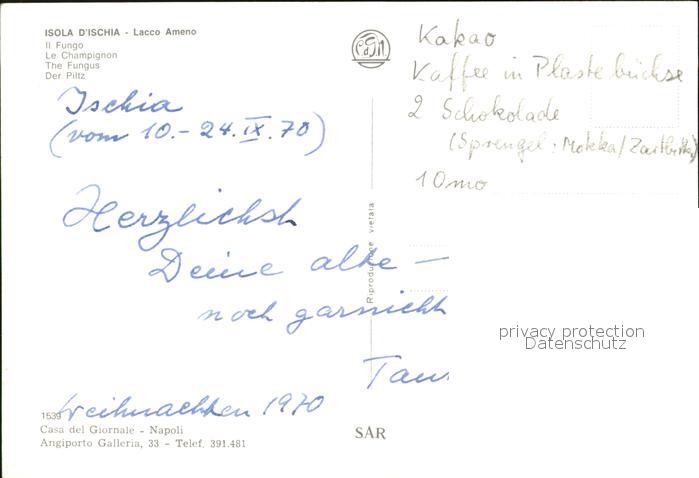 ISOLA D'ISCHIA - Lacco Ameno
Il Fungo
Le Champignon
The Fungus
Der Piltz
Ischia
(vom 10.- 24. IX. 70)
Herzlichst
Deine alte —
noch garnicht
Tan
Weihnachten 1970
1539
Casa del Giornale - Napoli
Angiporto Galleria, 33 - Telef. 391.481
Riproduzione vietata
SAR
Kakao
Kaffee in Plastebüchse
2 Schokolade
(Sprengel: Mokka/Zartbitter)
1 Omo
privacy protection
Datenschutz